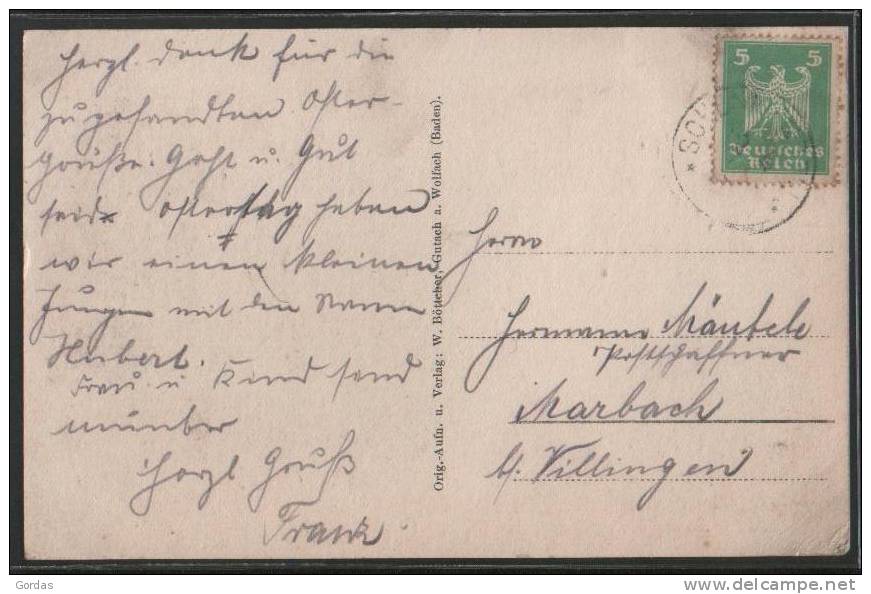 Herzl. Dank für die
zugesandten Oster-
grüße. Geht u. Gut
seid Ostertag haben
wir einen kleinen
Jungen mit den Namen
Hubert.
Frau u Kind send
munter
Herzl Gruß
Franz.
Orig.-Aufn. u. Verlag: W. Böttcher, Gutach a. Wolfach (Baden).
5 5
Deutsches
Reich
Herrn
Hermann Mäntele
Postschaffner
Marbach
b/ Villingen
Gordas
www.delcampe.net